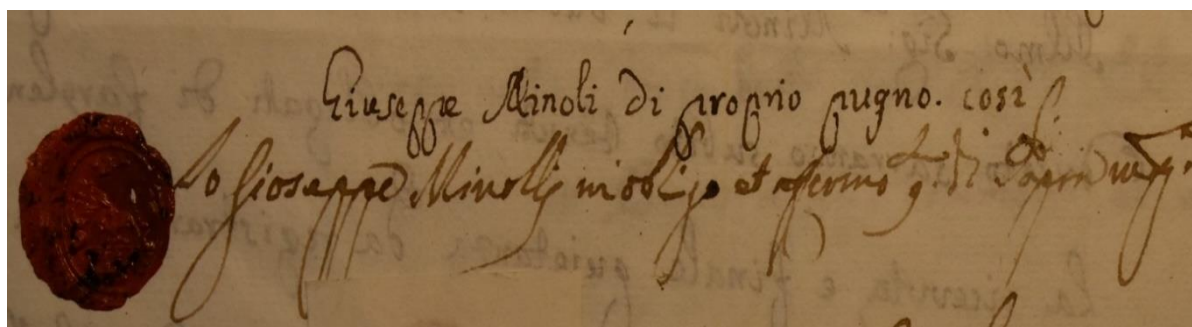 Giuseppe Minoli di proprio pugno. così
Io Gioseppe Minolli mi obligo et afermo q.to di sopra